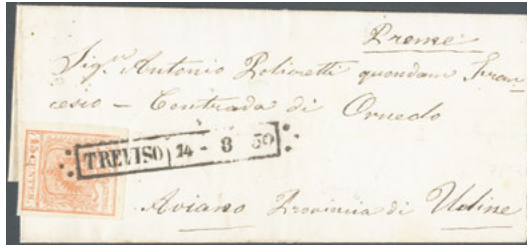 Preme
Sig.r Antonio Polioretti quondam Fran=
cesco – Contrada di Ornedo
TREVISO 14 - 8 50
15 CENTES.
Aviano Provincia di Udine